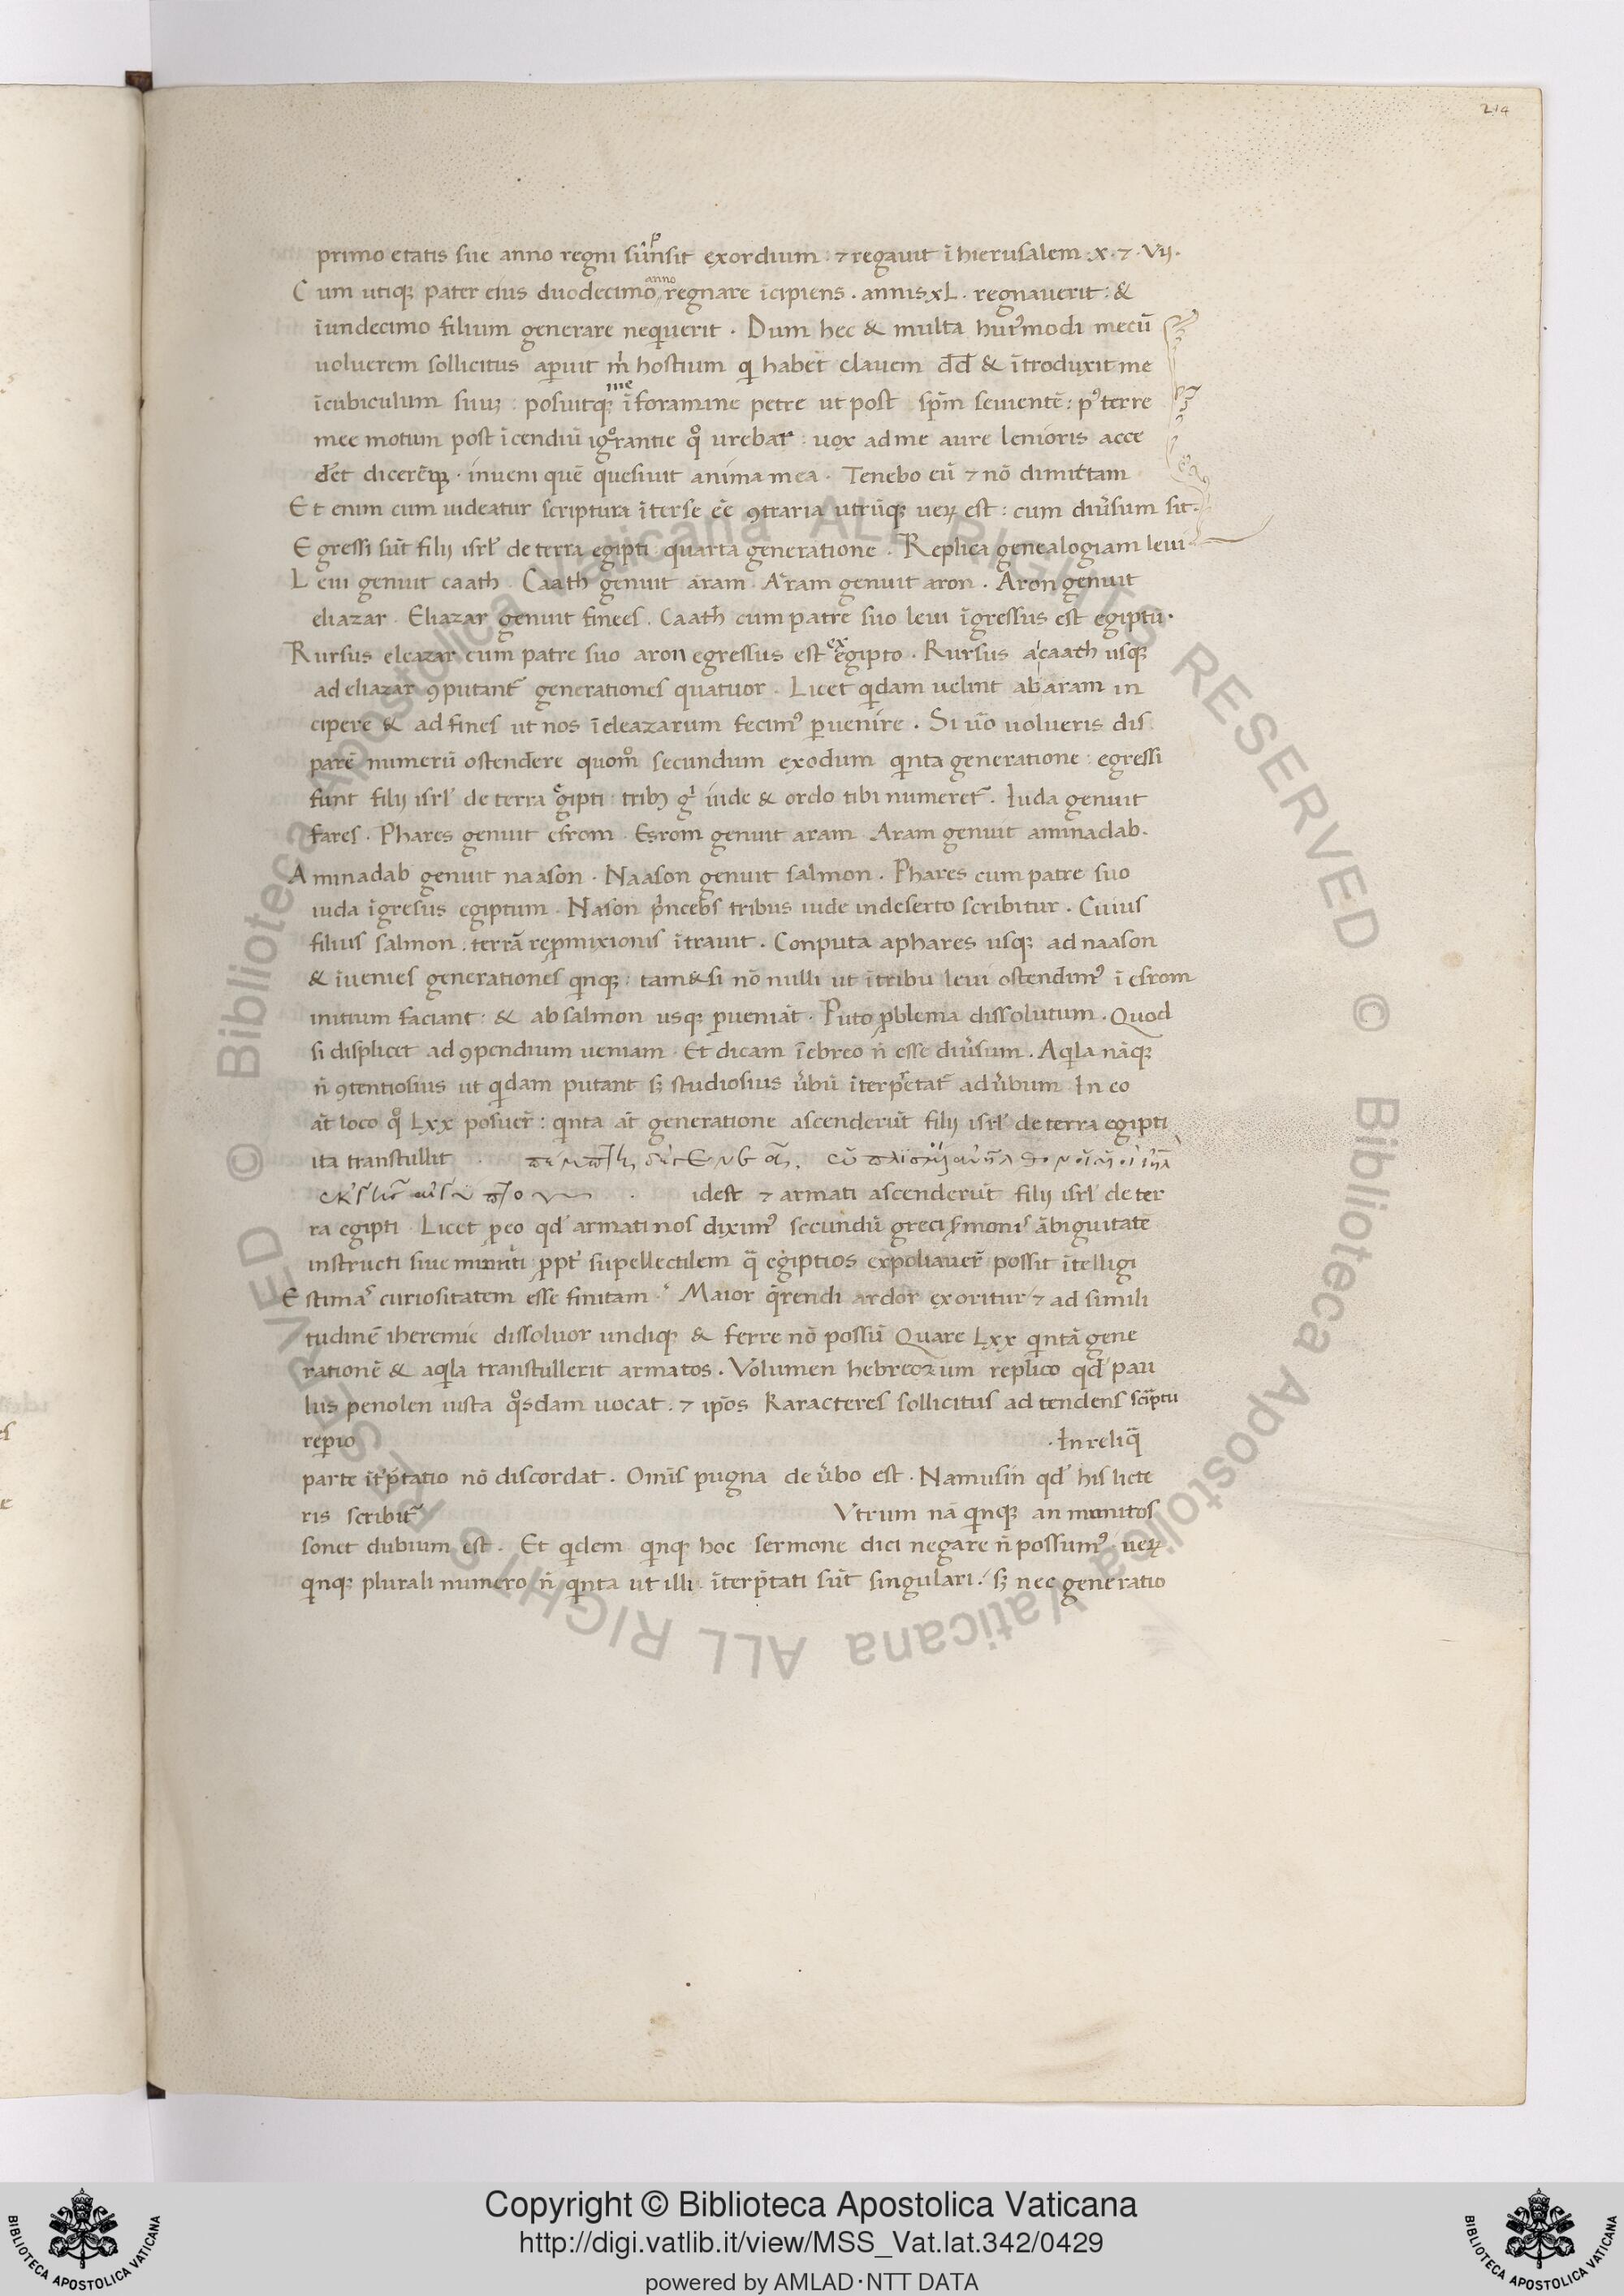 214
primo etatis sue anno regni sūpsit exordium : ⁊ regavit ī hierusalem . x . ⁊ . vij .
Cum utiqꝫ pater eius duodecimo anno regnare īcipiens . annis xL . regnaverit : &
īundecimo filium generare neqͥverit . Dum hec & multa huiꝰmodi mecū
voluerem sollicitus apͥuit m̍ hostium qͥ habet clavem dd̄ & ītroduxit me
īcubiculum suuꝫ : posuitqꝫ me īforamine petre ut post sp̄m sevientē : pꝰ terre
mee motum post īcendiū igͦrantie qͦ urebar : vox ad me aure lenioris acce
det dicerēqꝫ . inveni quē quesivit anima mea . Tenebo eū ⁊ nō dimittam
Et enim cum videatur scriptura īterse eē ꝯtraria utrūqꝫ veꝝ est : cum div̓sum sit .
Egressi sūt filij isrl̓ de terra egipti quarta generatione . Replica genealogiam levi
Levi genuit caath . Caath genuit aram . Aram genuit aron . Aron genuit
eliazar . Eliazar genuit finees . Caath cum patre suo levi īgressus est egiptū .
Rursus eleazar cum patre suo aron egressus est ex egipto . Rursus a caath usqꝫ
ad eliazar ꝯputant᷑ generationes quatuor . Licet qͥdam velint ab aram in
cipere & ad fines ut nos īeleazarum fecimꝰ pͥvenire . Si v̄o volueris dis
parē numerū ostendere quomͦ secundum exodum qͥnta generatione : egressi
sunt filij isrl̓ de terra egipti : tribꝫ gͥ iude & ordo tibi numeret᷑ . Iuda genuit
fares . Phares genuit esrom . Esrom genuit aram Aram genuit aminadab .
Aminadab genuit naason . Naason genuit salmon . Phares cum patre suo
iuda īgresus egiptum . Nason pͥncebs tribus iude indeserto scribitur . Cuius
filius salmon . terrā repͥmixionis ītravit . Conputa aphares usqꝫ ad naason
& īvenies generationes qͥnqꝫ : tam&si nō nulli ut ī tribu levi ostendimꝰ ī esrom
initium faciant : & ab salmon usqꝫ pͥveniāt . Puto pͥblema dissolutum . Quod
si displicet ad ꝯpendium veniam . Et dicam ī ebreo n̄ esse div̓sum . Aqͥla nāqꝫ
n̄ ꝯtentiosius ut qͥdam putant sꝫ studiosius v̓bū īterp̄etat᷑ ad v̓bum In eo
āt loco qͦ Lxx posuer̄ : qͥnta āt generatione ascenderūt filij isrl̓ de terra egipti
ita transtullit .
. idest ⁊ armati ascenderūt filij isrl̓ de ter
ra egipti . Licet pͥ eo qd̓ armati nos diximꝰ secundū greci s̓monis ābiguitatē
instructi sive muniti pͥpt̓ supellectilem qͣ egiptios expoliaver̄ possit ītelligi
Estimaˢ curiositatem esse finitam . Maior qͥrendi ardor exoritur ⁊ ad simili
tudinē iheremie dissolvor undiqꝫ & ferre nō possū Quare Lxx qͥntā gene
rationē & aqͥla transtullerit armatos . Volumen hebreorum replico qd̓ pau
lus penolen iusta qͦsdam vocat . ⁊ ip̄os karacteres sollicitus ad tendens sc̄ptu
repͥio . In reliqͣ
parte īt̓p̄tatio nō discordat . Om̄is pugna de v̓bo est . Namusin qd̓ his licte
ris scribit᷑ Utrum nā qͥnqꝫ an munitos
sonet dubium est . Et qͥdem qͥnqꝫ hoc sermone dici negare n̄ possumꝰ . veꝝ
qͥnqꝫ plurali numero n̄ qͥnta ut illi īterp̄tati sūt singulari . sꝫ nec generatio
© Biblioteca Apostolica Vaticana ALL RIGHTS RESERVED © Biblioteca Apostolica Vaticana ALL RIGHTS RESERVED
BIBLIOTECA APOSTOLICA VATICANA
Copyright © Biblioteca Apostolica Vaticana
http://digi.vatlib.it/view/MSS_Vat.lat.342/0429
powered by AMLAD・NTT DATA
BIBLIOTECA APOSTOLICA VATICANA